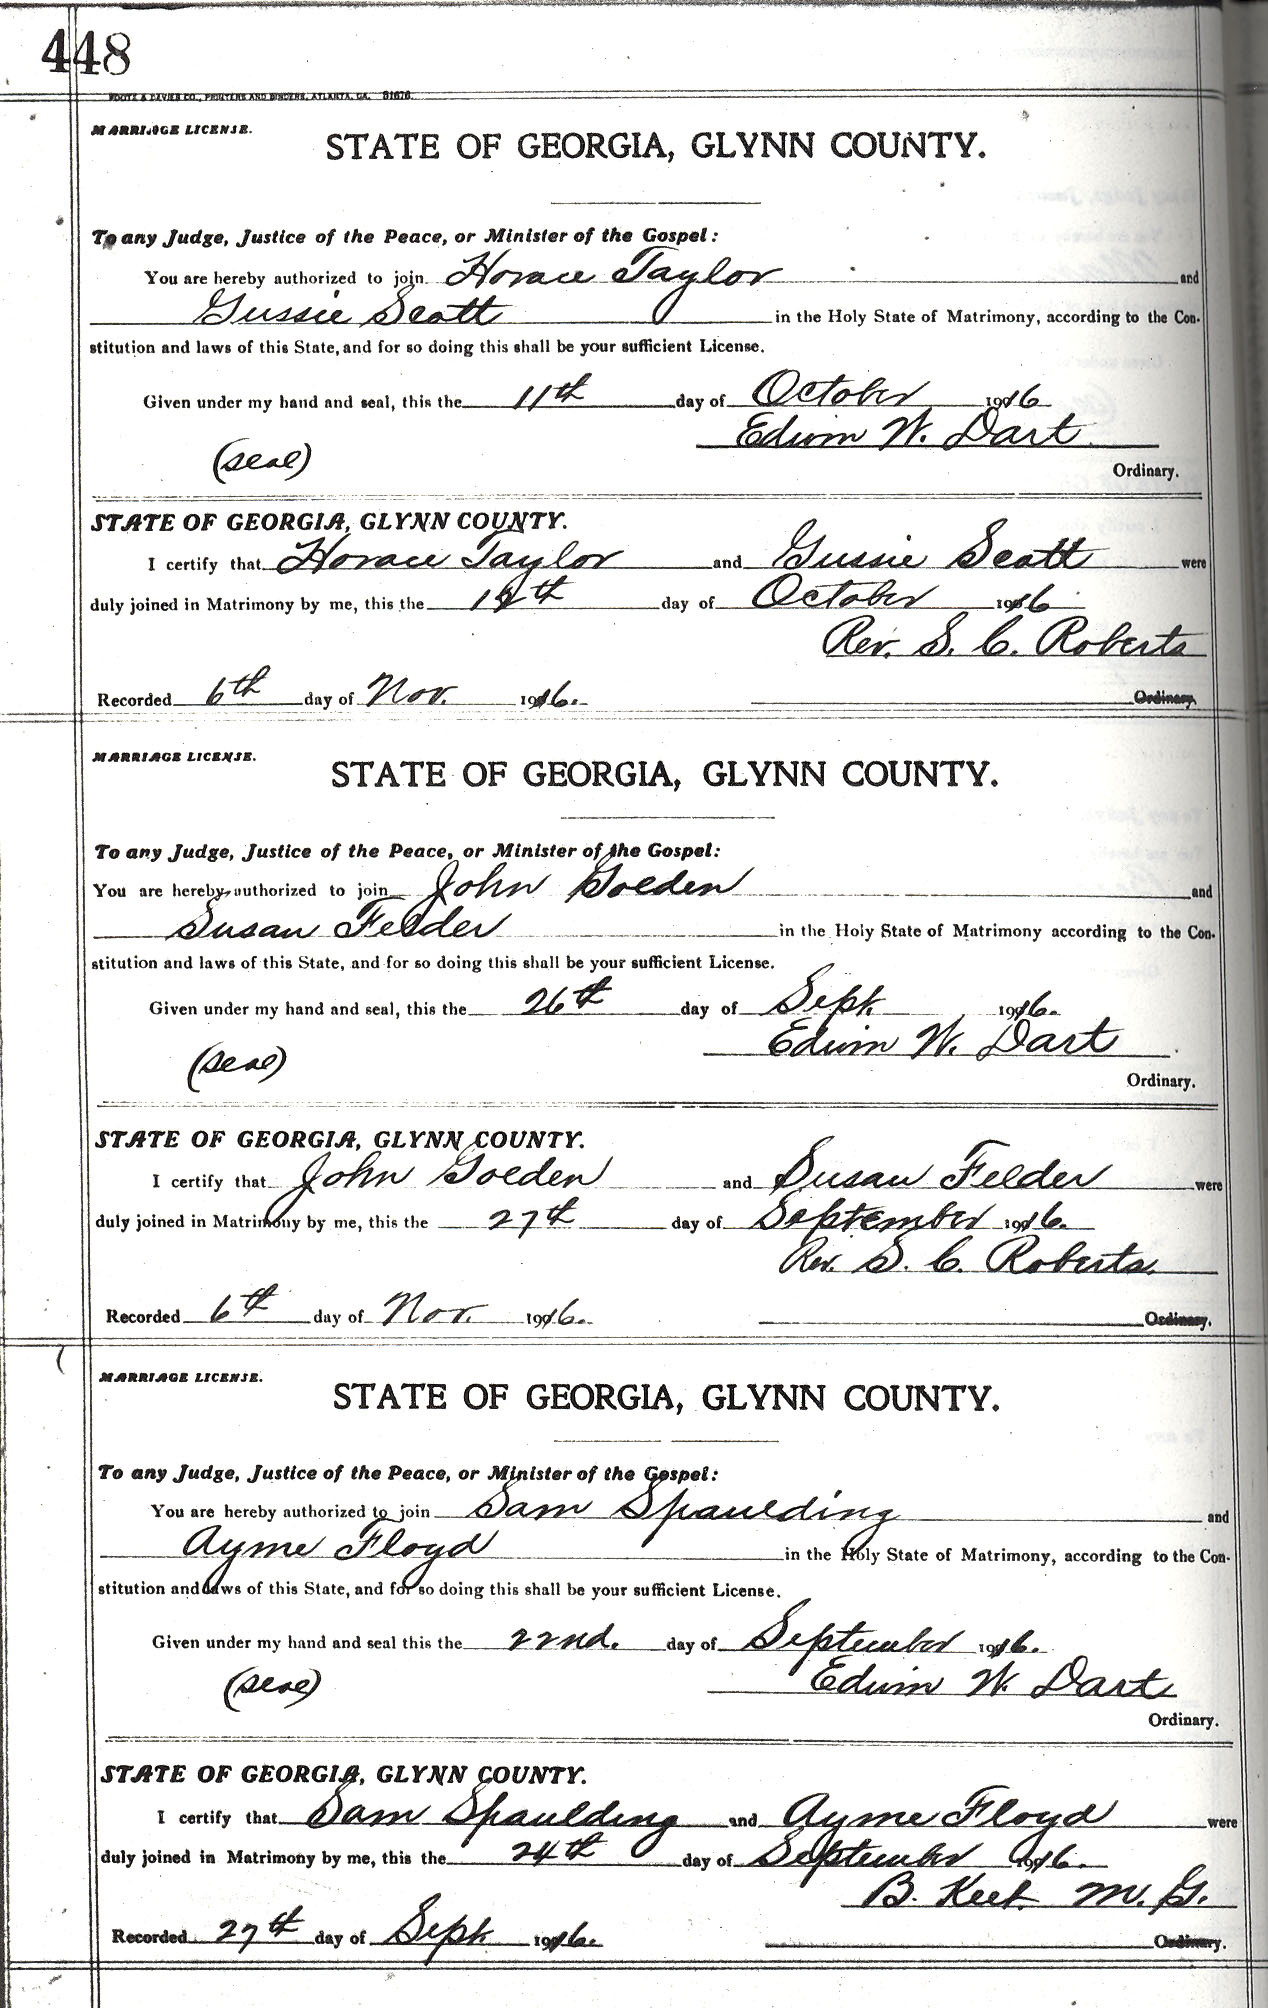 448
FOOTE & DAVIES CO., PRINTERS AND BINDERS, ATLANTA, GA. 81676.
MARRIAGE LICENSE.
STATE OF GEORGIA, GLYNN COUNTY.
To any Judge, Justice of the Peace, or Minister of the Gospel:
You are hereby authorized to join Horace Taylor and
Gussie Scott in the Holy State of Matrimony, according to the Con-
stitution and laws of this State, and for so doing this shall be your sufficient License.
Given under my hand and seal, this the 11th day of October 1916
Edwin W. Dart
(seal)
Ordinary.
STATE OF GEORGIA, GLYNN COUNTY.
I certify that Horace Taylor and Gussie Scott were
duly joined in Matrimony by me, this the day of October 1916
Rev. S. C. Roberts
Recorded 6th day of Nov. 1916. Ordinary.
MARRIAGE LICENSE.
STATE OF GEORGIA, GLYNN COUNTY.
To any Judge, Justice of the Peace, or Minister of the Gospel:
You are hereby authorized to join John Golden and
Susan Felder in the Holy State of Matrimony according to the Con-
stitution and laws of this State, and for so doing this shall be your sufficient License.
Given under my hand and seal, this the 26th day of Sept. 1916.
Edwin W. Dart
(seal)
Ordinary.
STATE OF GEORGIA, GLYNN COUNTY.
I certify that John Golden and Susan Felder were
duly joined in Matrimony by me, this the 27th day of September 1916.
Rev. S. C. Roberts.
Recorded 6th day of Nov. 1916. Ordinary.
MARRIAGE LICENSE.
STATE OF GEORGIA, GLYNN COUNTY.
To any Judge, Justice of the Peace, or Minister of the Gospel:
You are hereby authorized to join Sam Spaulding and
Ayme Floyd in the Holy State of Matrimony, according to the Con-
stitution and laws of this State, and for so doing this shall be your sufficient License.
Given under my hand and seal this the 22nd. day of September 1916.
Edwin W. Dart
(seal)
Ordinary.
STATE OF GEORGIA, GLYNN COUNTY.
I certify that Sam Spaulding and Ayme Floyd were
duly joined in Matrimony by me, this the 24th day of September 1916.
B. Keet M. G.
Recorded 27th day of Sept. 1916. Ordinary.